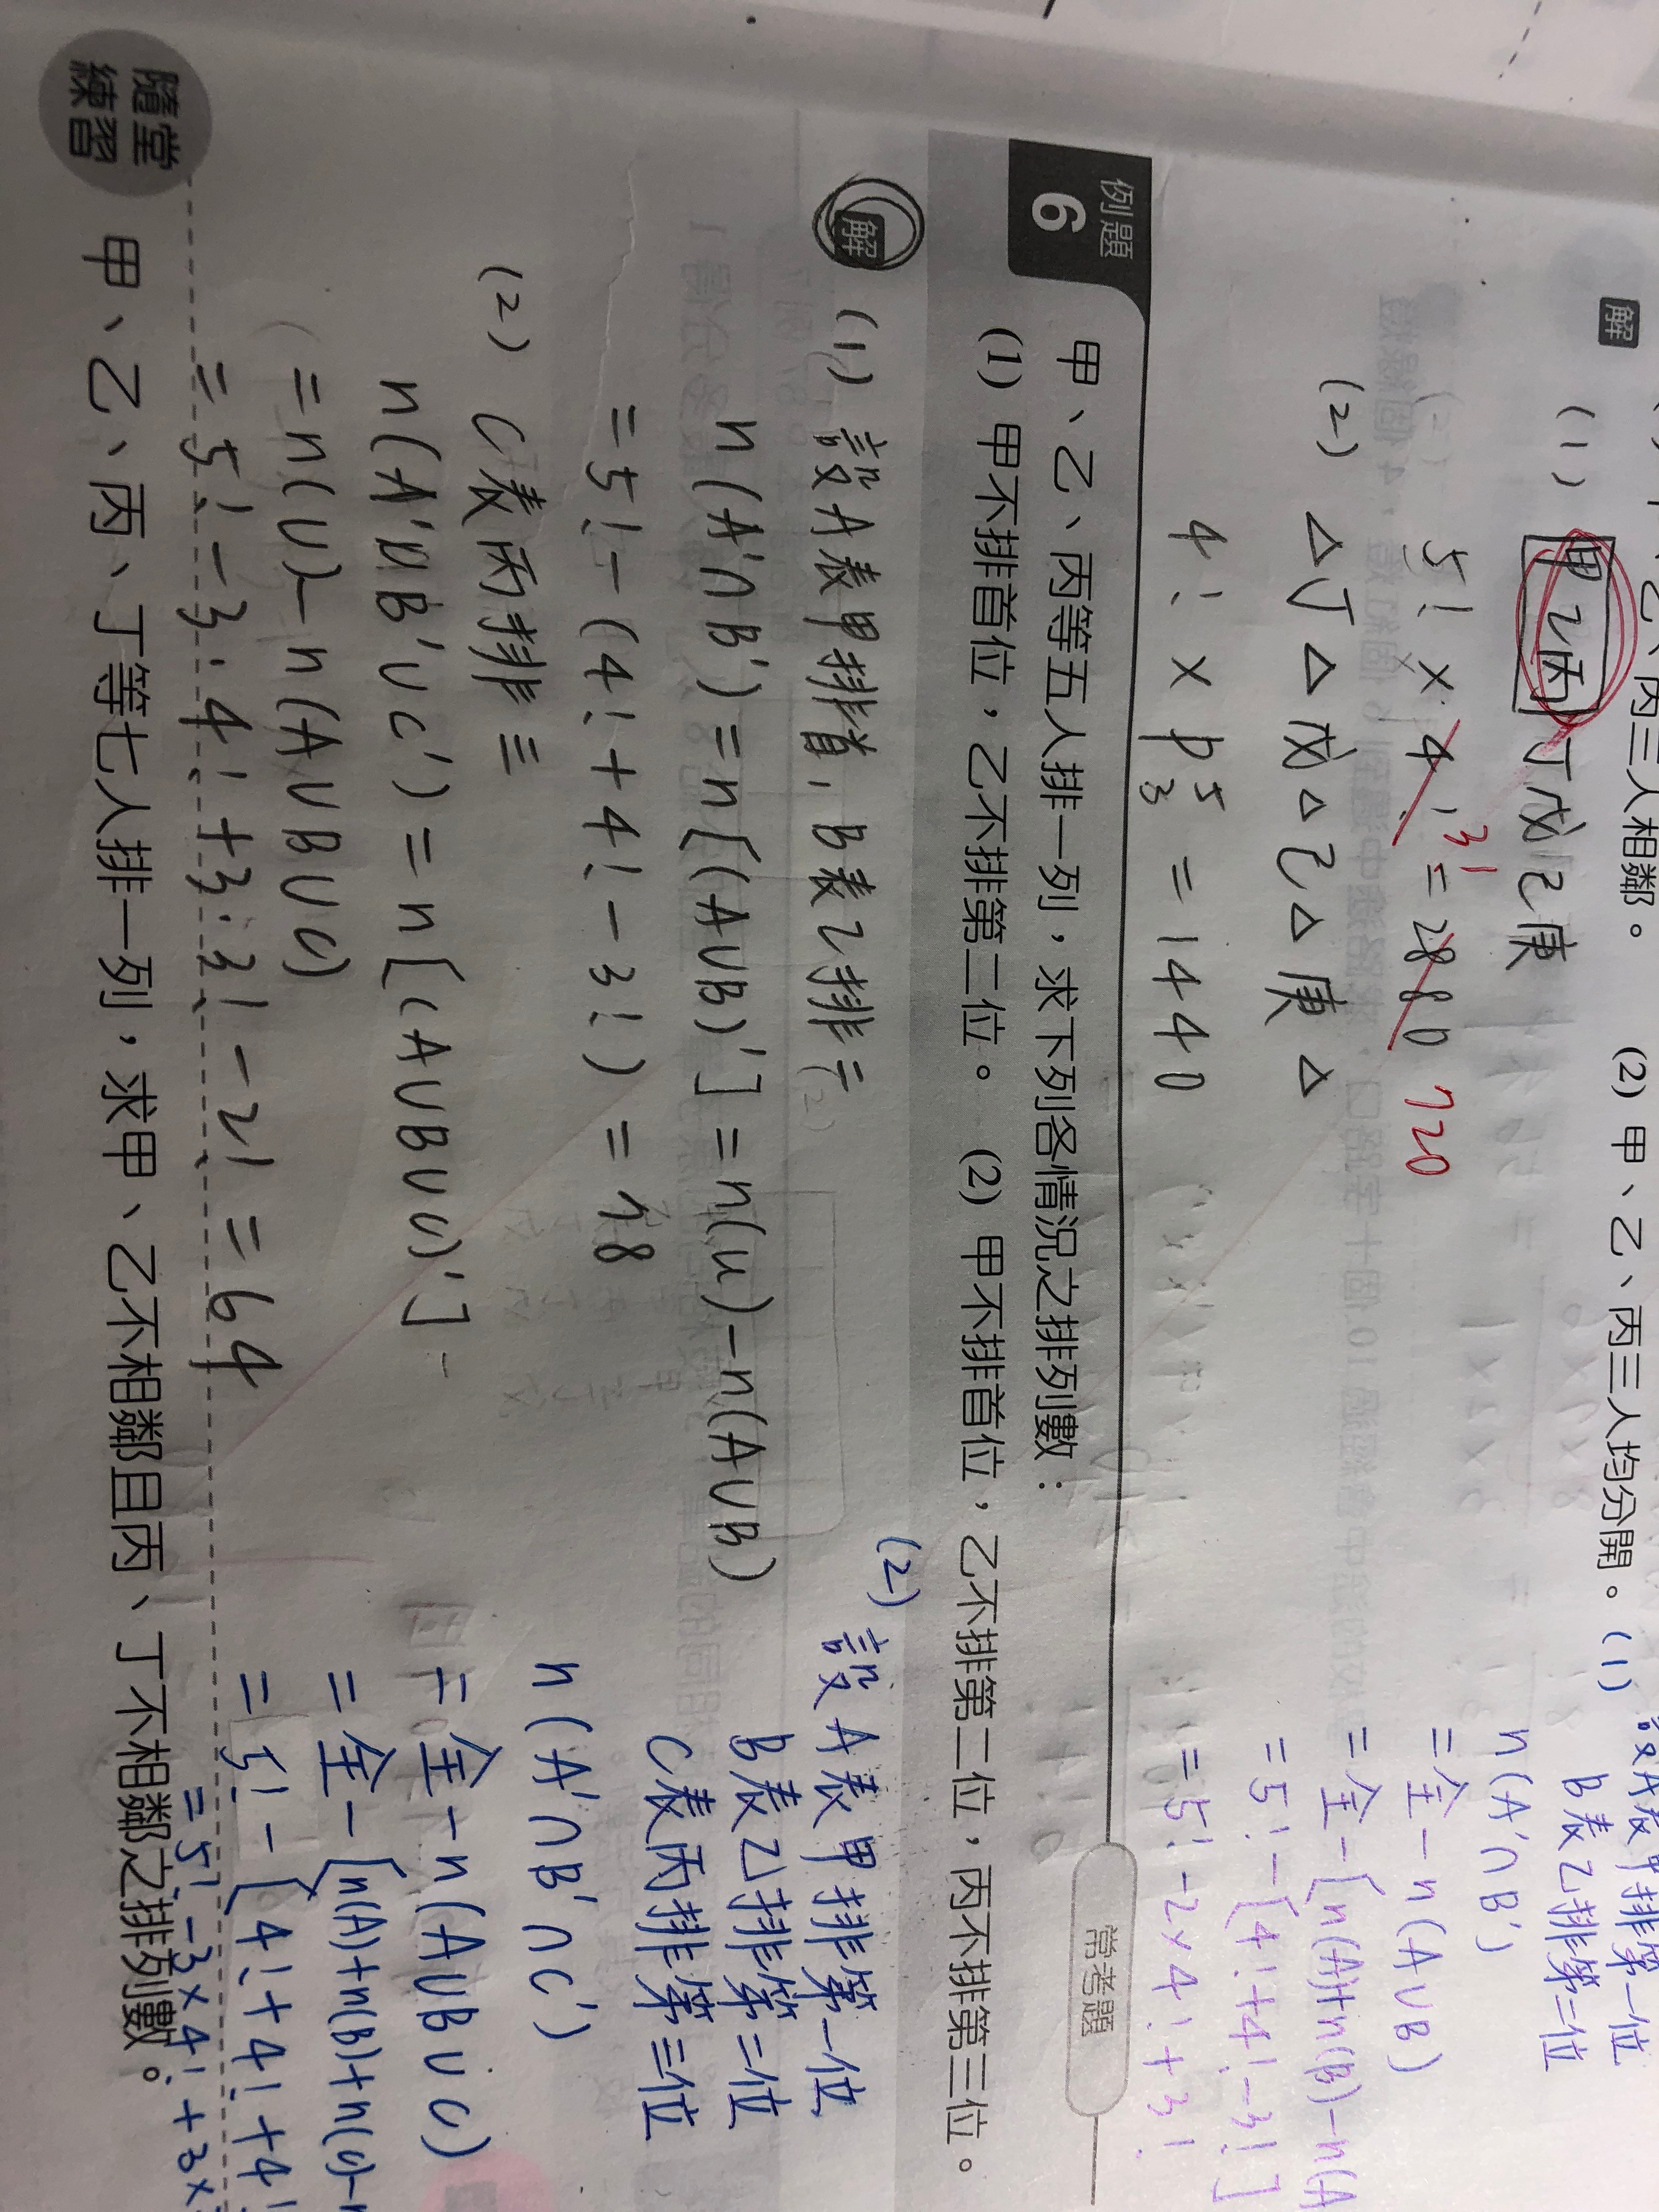 乙、丙三人相鄰。
(2) 甲、乙、丙三人均分開。
解
(1) 甲乙丙丁戊己庚
5! × 4! 3! = 2880 720
(2) △丁△戊△己△庚△
4! × P⁵₃ = 1440
(1) 設A表甲排第一位
B表乙排第二位
n(A'∩B')
=全-n(A∪B)
=全-[n(A)+n(B)-n(A
=5!-[4!+4!-3!]
=5!-2×4!+3!
常考題
例題
6
甲、乙、丙等五人排一列，求下列各情況之排列數：
(1) 甲不排首位，乙不排第二位。 (2) 甲不排首位，乙不排第二位，丙不排第三位。
解
(1) 設A表甲排首，B表乙排二
n(A'∩B')=n[(A∪B)']=n(u)-n(A∪B)
=5!-(4!+4!-3!)=78
(2) C表丙排三
n(A'∩B'∪C')=n[(A∪B∪C)']
=n(U)-n(A∪B∪C)
=5!-3·4!+3·3!-2!=64
(2) 設A表甲排第一位
B表乙排第二位
C表丙排第三位
n(A'∩B'∩C')
=全-n(A∪B∪C)
=全-[n(A)+n(B)+n(C)-n
=5!-[4!+4!+4!
=5!-3×4!+3×
隨堂
練習
甲、乙、丙、丁等七人排一列，求甲、乙不相鄰且丙、丁不相鄰之排列數。